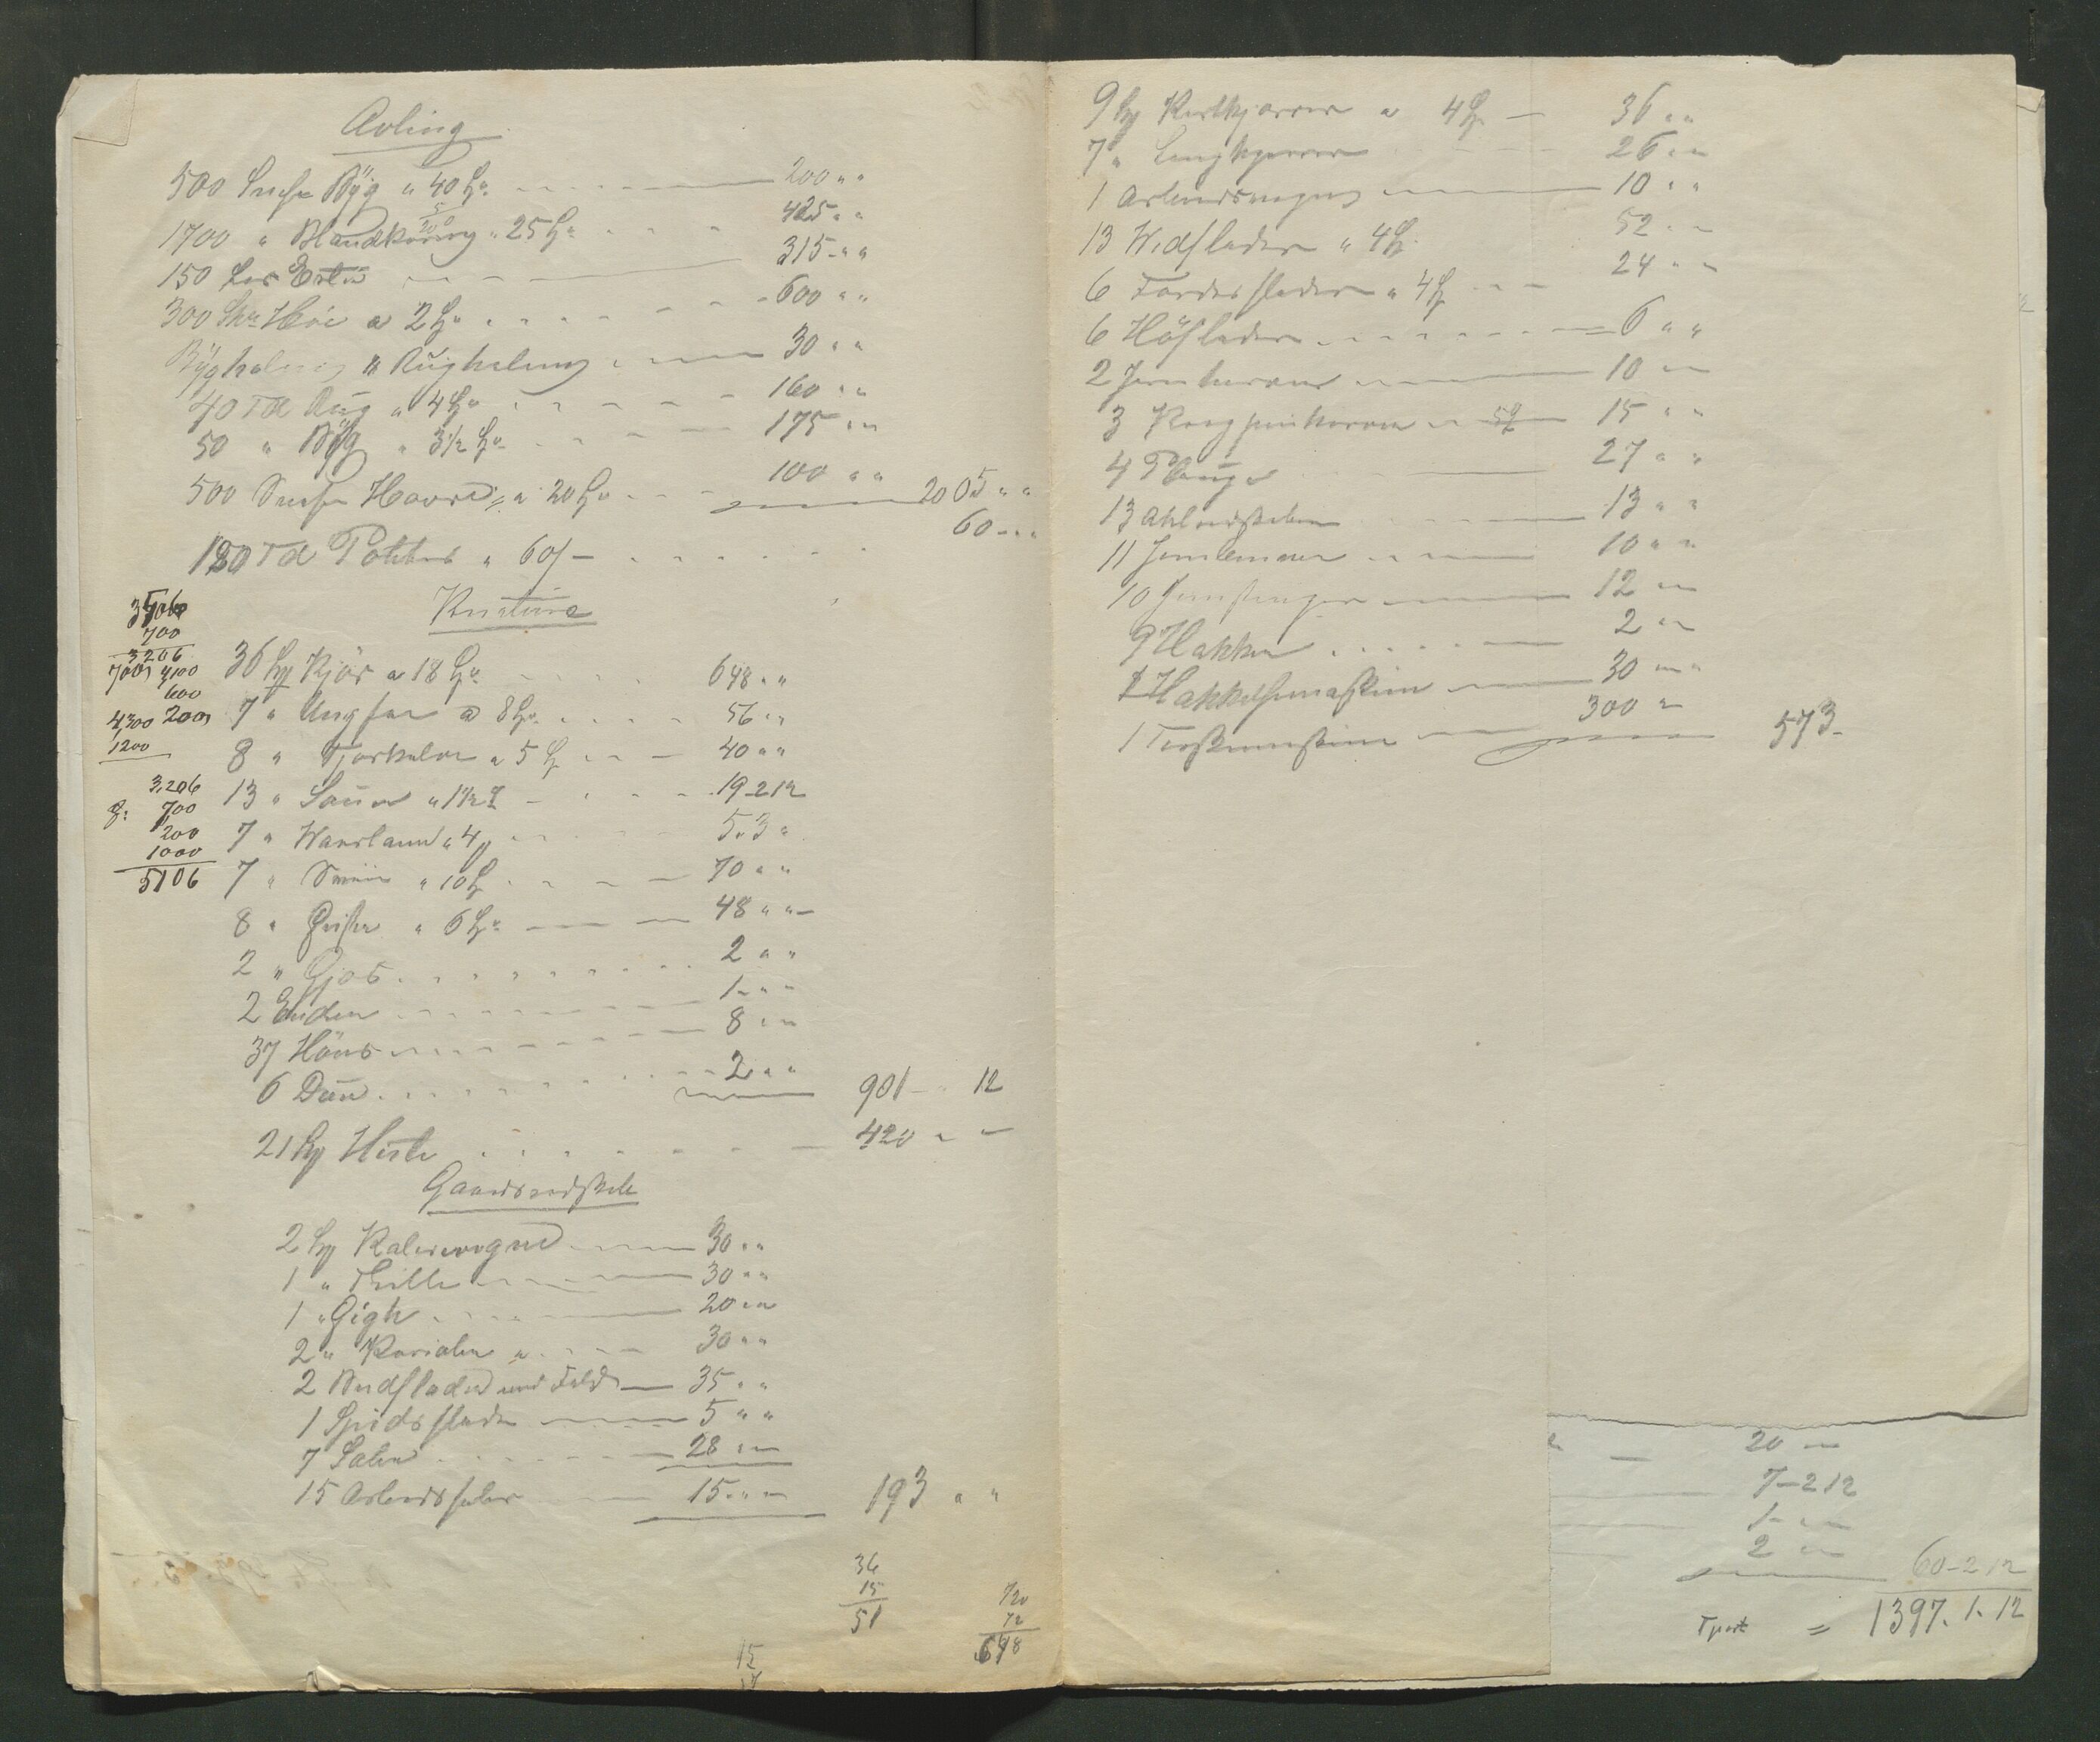 Avling
500 Snese Byg a 40 ß 200 " "
1700 " Blandkorn " 25 ß 425 " "
150 Les Erter 315 " "
300 Höi a 2 600 " "
Byghalm & Rughalm 30 " "
40 Td Rug " 4 160 " "
50 " Byg " 3 1/2 175 " "
500 Snese Havre a 20 ß 100 " " 2005 " "
120 Td Poteter " 60 ß 60 " "
Kreature
700
3206
7000 4100
600
4300 2000
1200
3206
8: 700
200
1000
5106
36 Kjör a 18 648 " "
7 " Ungfæ a 8 56 " "
8 " Gjorkalve a 5 40 " "
13 " Sauer " 1 1/2 19 2 12
7 " Vaarlam " 4 5 " 3 "
7 " Sviin " 10 70 " "
8 " Griser " 6 48 " "
2 " Gjæs 2 " "
2 Ender 1 " "
37 Höns 8 " "
6 Duer 2 " " 901 " 12
21 Heste 420 " "
Gaardsredskab
2 Kalesevogne 30 " "
1 " Trille 30 " "
1 " Gigh 20 " "
2 " Karioler 30 " "
2 Bredslæder med Feld 35 " "
1 Spidsslæde 5 " "
7 Saler 28 " "
15 Arbeidsseler 15 " " 193 " "
36
15
51
720
72
648
15
9 Kjærrer a 4 36 " "
7 " Langkjærrer 26 " "
1 Arbeidsvogn 10 " "
13 Vedslæder " 4 52 " "
6 slæder " 4 24 " "
6 Höslæder 6 " "
2 Jernharver 10 " "
3 harver 15 " "
4 Plouge 27 " "
13 13 " "
11 10 " "
10 Jernstænger 12 " "
9 Hakker 2 " "
1 Hakkelsemaskin 30 " "
1 Treskemaskine 300 " 573
20 "
7 - 2 12
1 - "
2 "
60 - 2 12
Tport = 1397. 1. 12